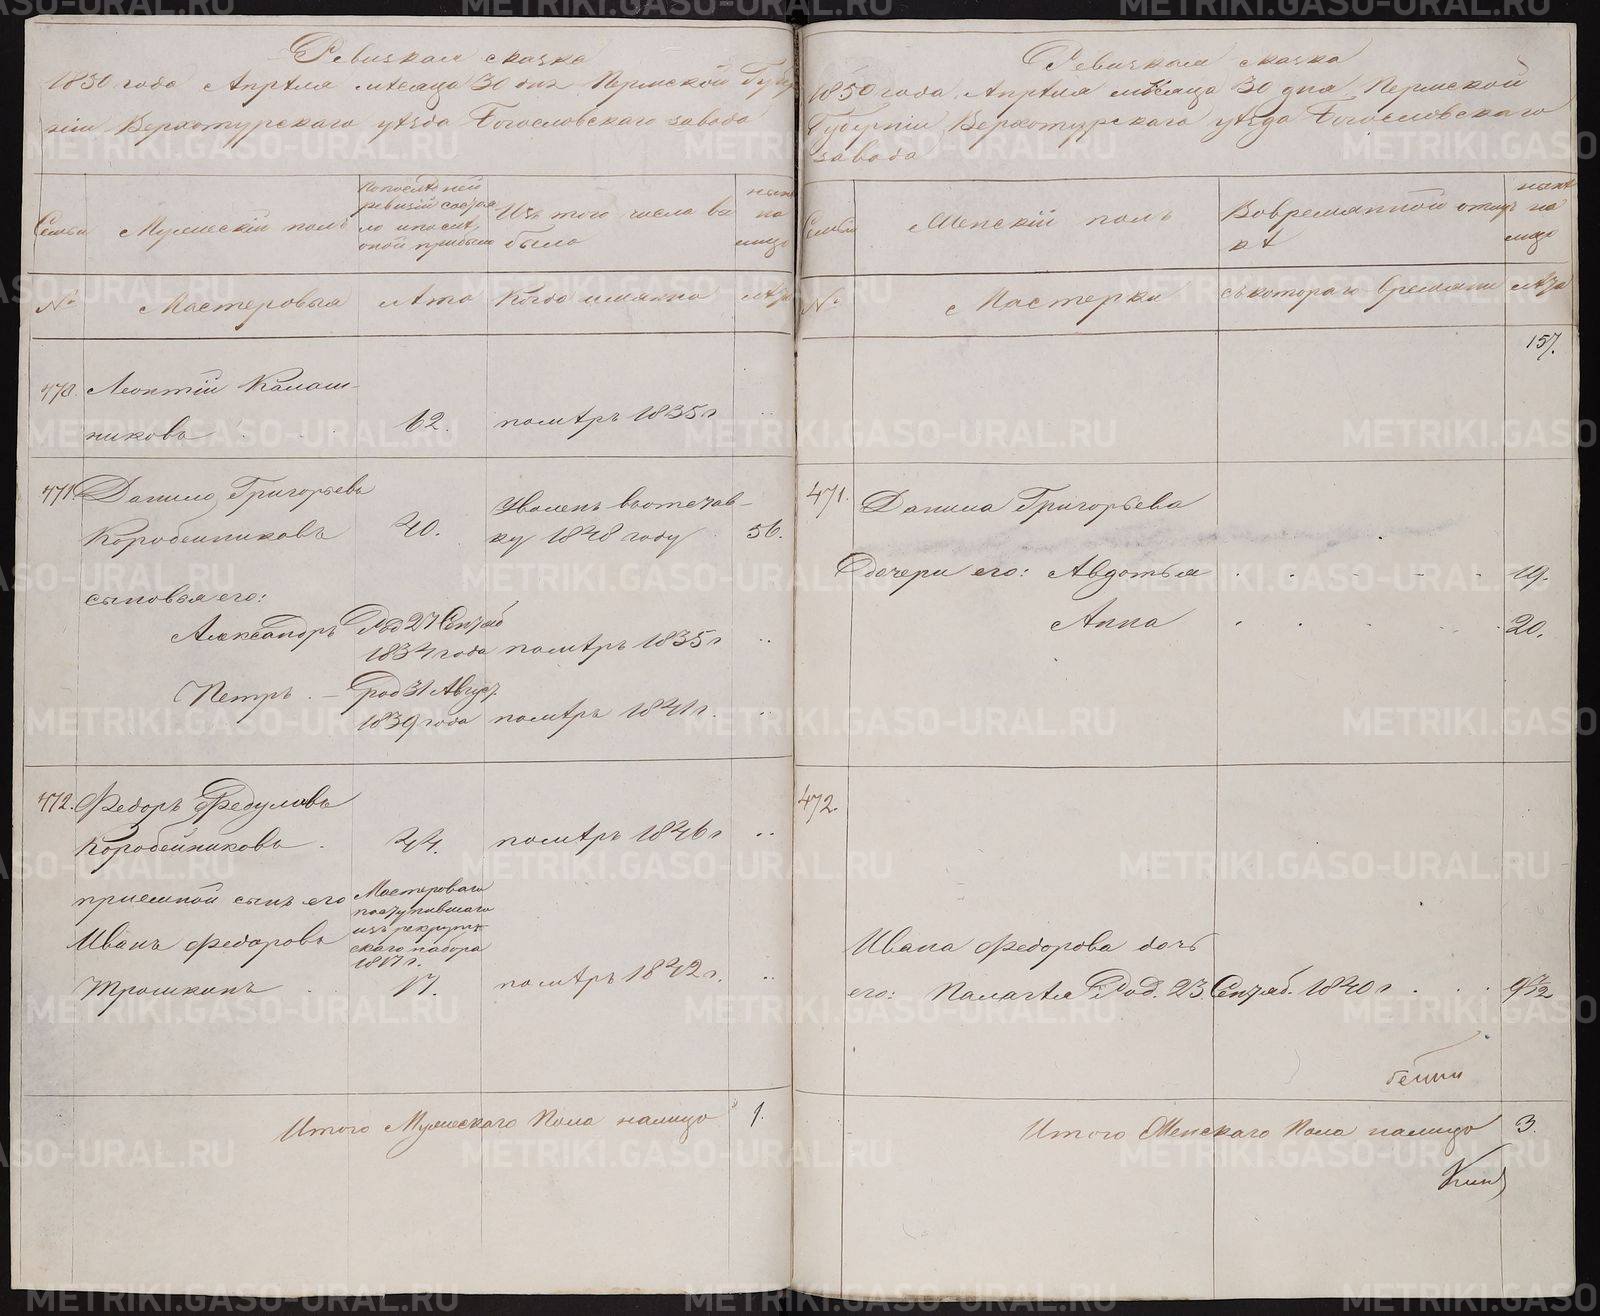 Ревизкая сказка
1850 года Апрѣля мѣсяца 30 дня Пермской Губер
ніи Верхотурскаго уѣзда Богословскаго завода
Семьи
Мужескій полъ
Попослѣдней
ревизіи состоя
ло и послѣ
оной прибыло
Изъ того числа вы
было
ныне
на
лицо
№
Мастеровыя
Лѣта
Когда имянно
Лѣта
470.
Леонтій Калаш-
никовъ
62.
помѣръ 1835 г
471.
Данило Григорьевъ
Коробейниковъ
40.
Уволенъ вь отстав-
ку 1848 году
56.
сыновья его:
Александръ
Род 27 Сентяб
1834 года
помѣръ 1835 г
Петръ
род 31 Август.
1839 года
помѣръ 1841 г.
472.
Федоръ Федуловъ
Коробейниковъ
44.
помѣръ 1846 г
приемной сынъ его
Иванъ Федоровъ
Трошкинъ
Мастероваго
поступившаго
изъ рекрут
скаго набора
1817 г.
17.
помѣръ 1842 г.
Итого Мужескаго Пола налицо
1.
Ревизкая сказка
1850 года Апрѣля мѣсяца 30 дня Пермской
Губерніи Верхотурскаго уѣзда Богословскаго
завода
Семьи
Женскій полъ
Вовремянной отлуч
кѣ
на
лицо
№
Мастерки
съ котораго времяни
Лѣта
157.
471.
Данила Григорьева
дочери его: Авдотья
19.
Анна
20.
472.
Ивана Федорова дочь
его: Палагѣя Род. 23 Сентяб. 1840 г
9 7/12
Итого Женскаго Пола налицо
3.
METRIKI.GASO-URAL.RU